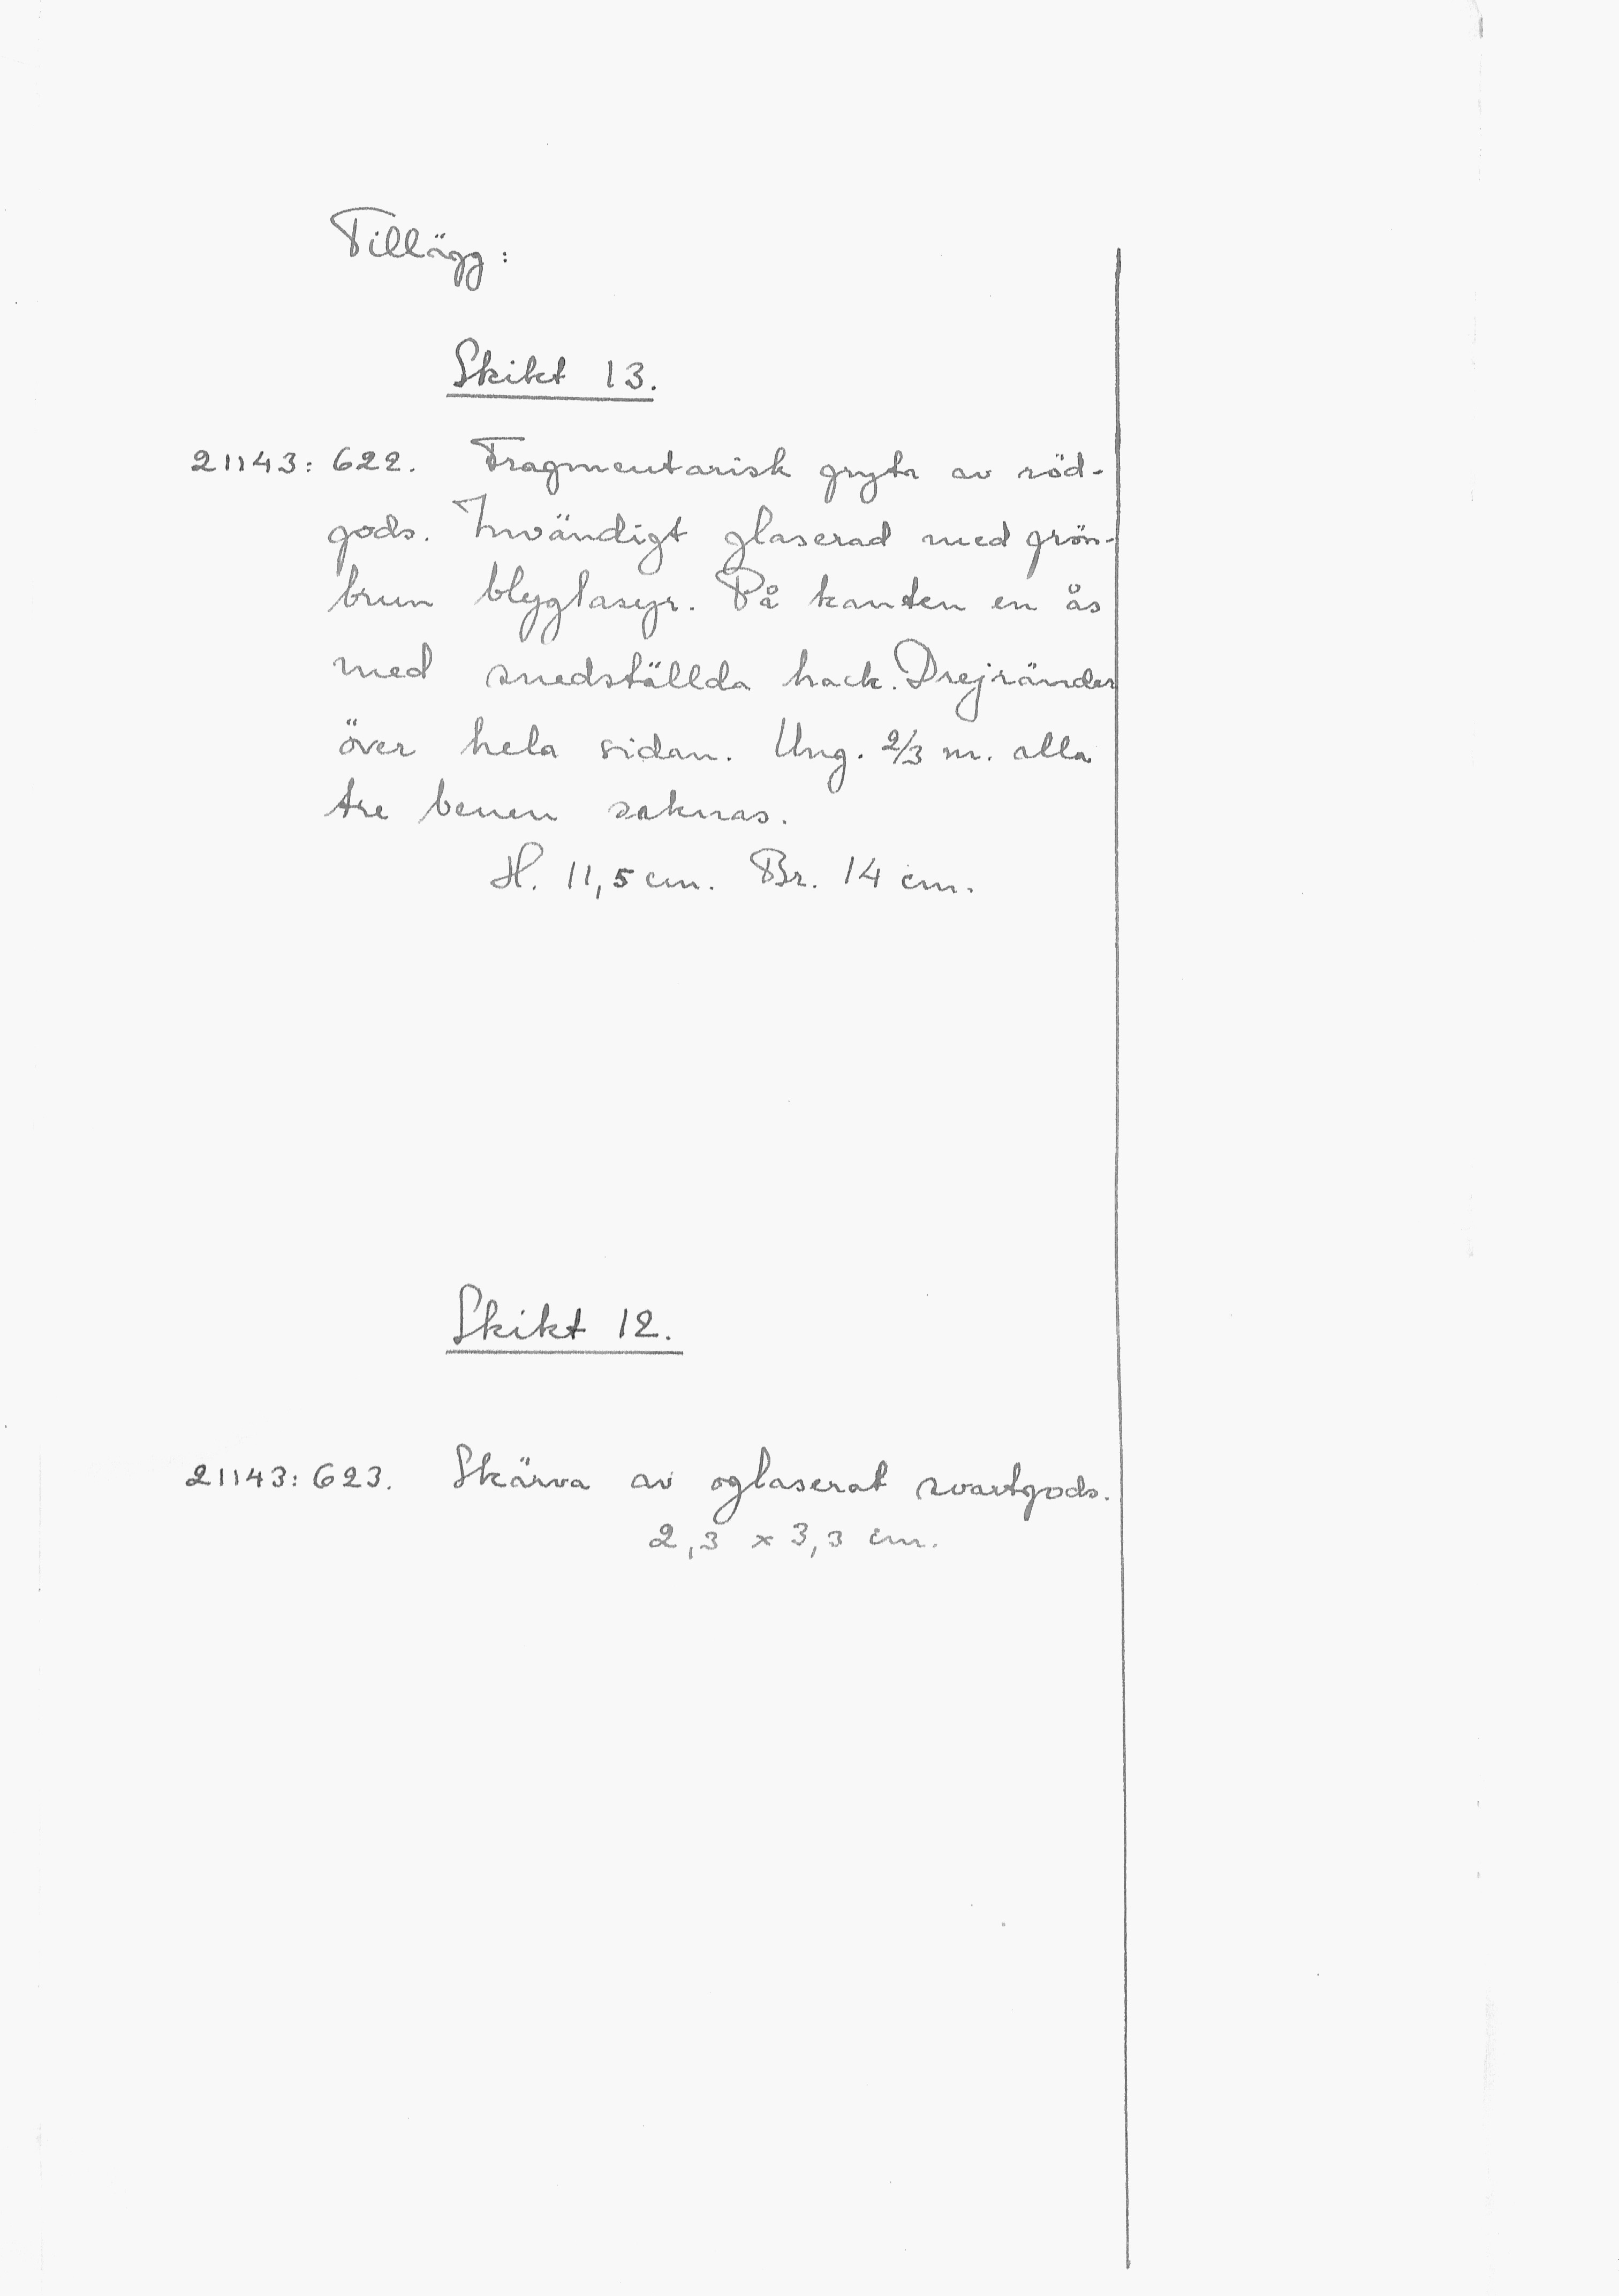 Tillägg:
Skikt 13.
21143:622. Fragmentarisk gryta av röd-
gods. Invändigt glaserad med grön-
brun blyglasyr. På kanten en ås
med snedställda hack. Drejränder
över hela sidan. Ung. 2/3 m. alla
tre benen saknas.
H. 11,5 cm. Br. 14 cm.
Skikt 12.
21143:623. Skärva av oglaserat svartgods.
2,3 x 3,3 cm.